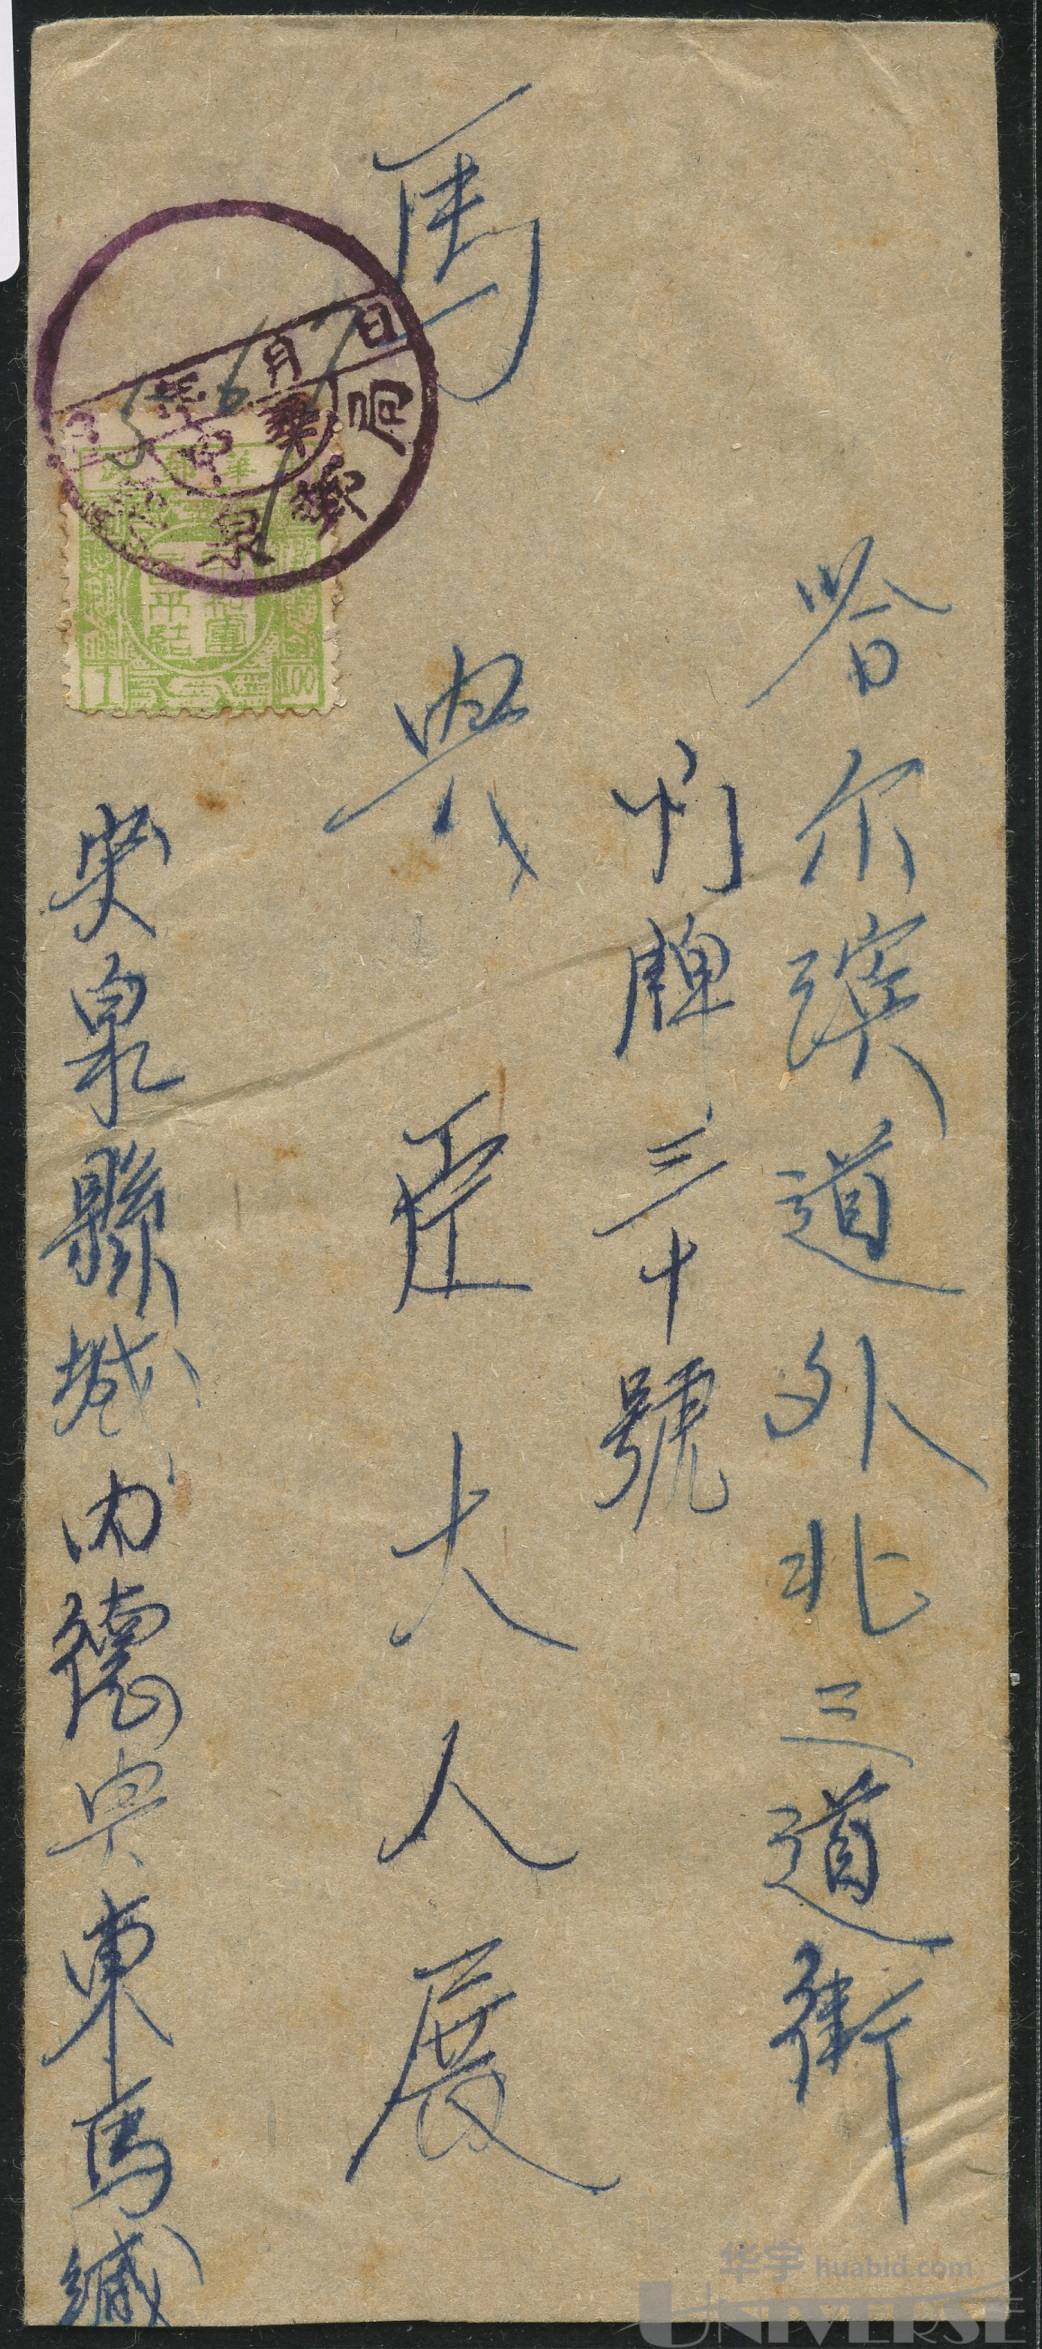 哈尔濱道外北三道街
門牌三十號
馬
興
臣
大人展
突泉縣城內德興東馬緘
年 月 日
突泉縣
1 1.00
华宇 huabid.com
UNIVERSE